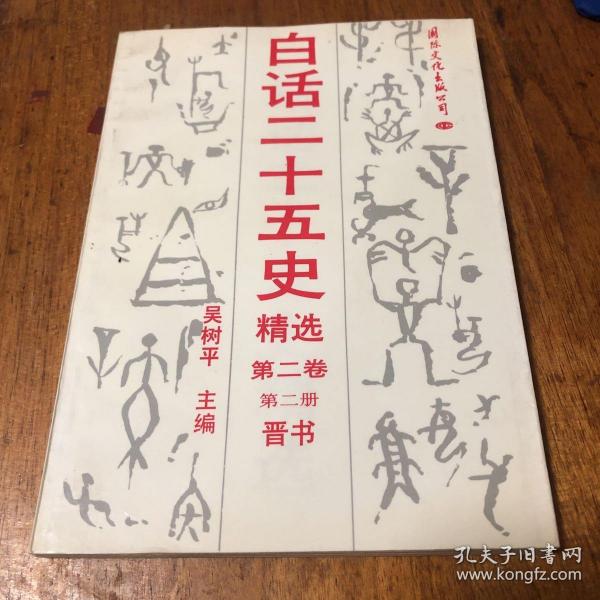 国际文化出版公司
白话二十五史
精选
第二卷
第二册
晋书
吴树平 主编
孔夫子旧书网
www.kongfz.com